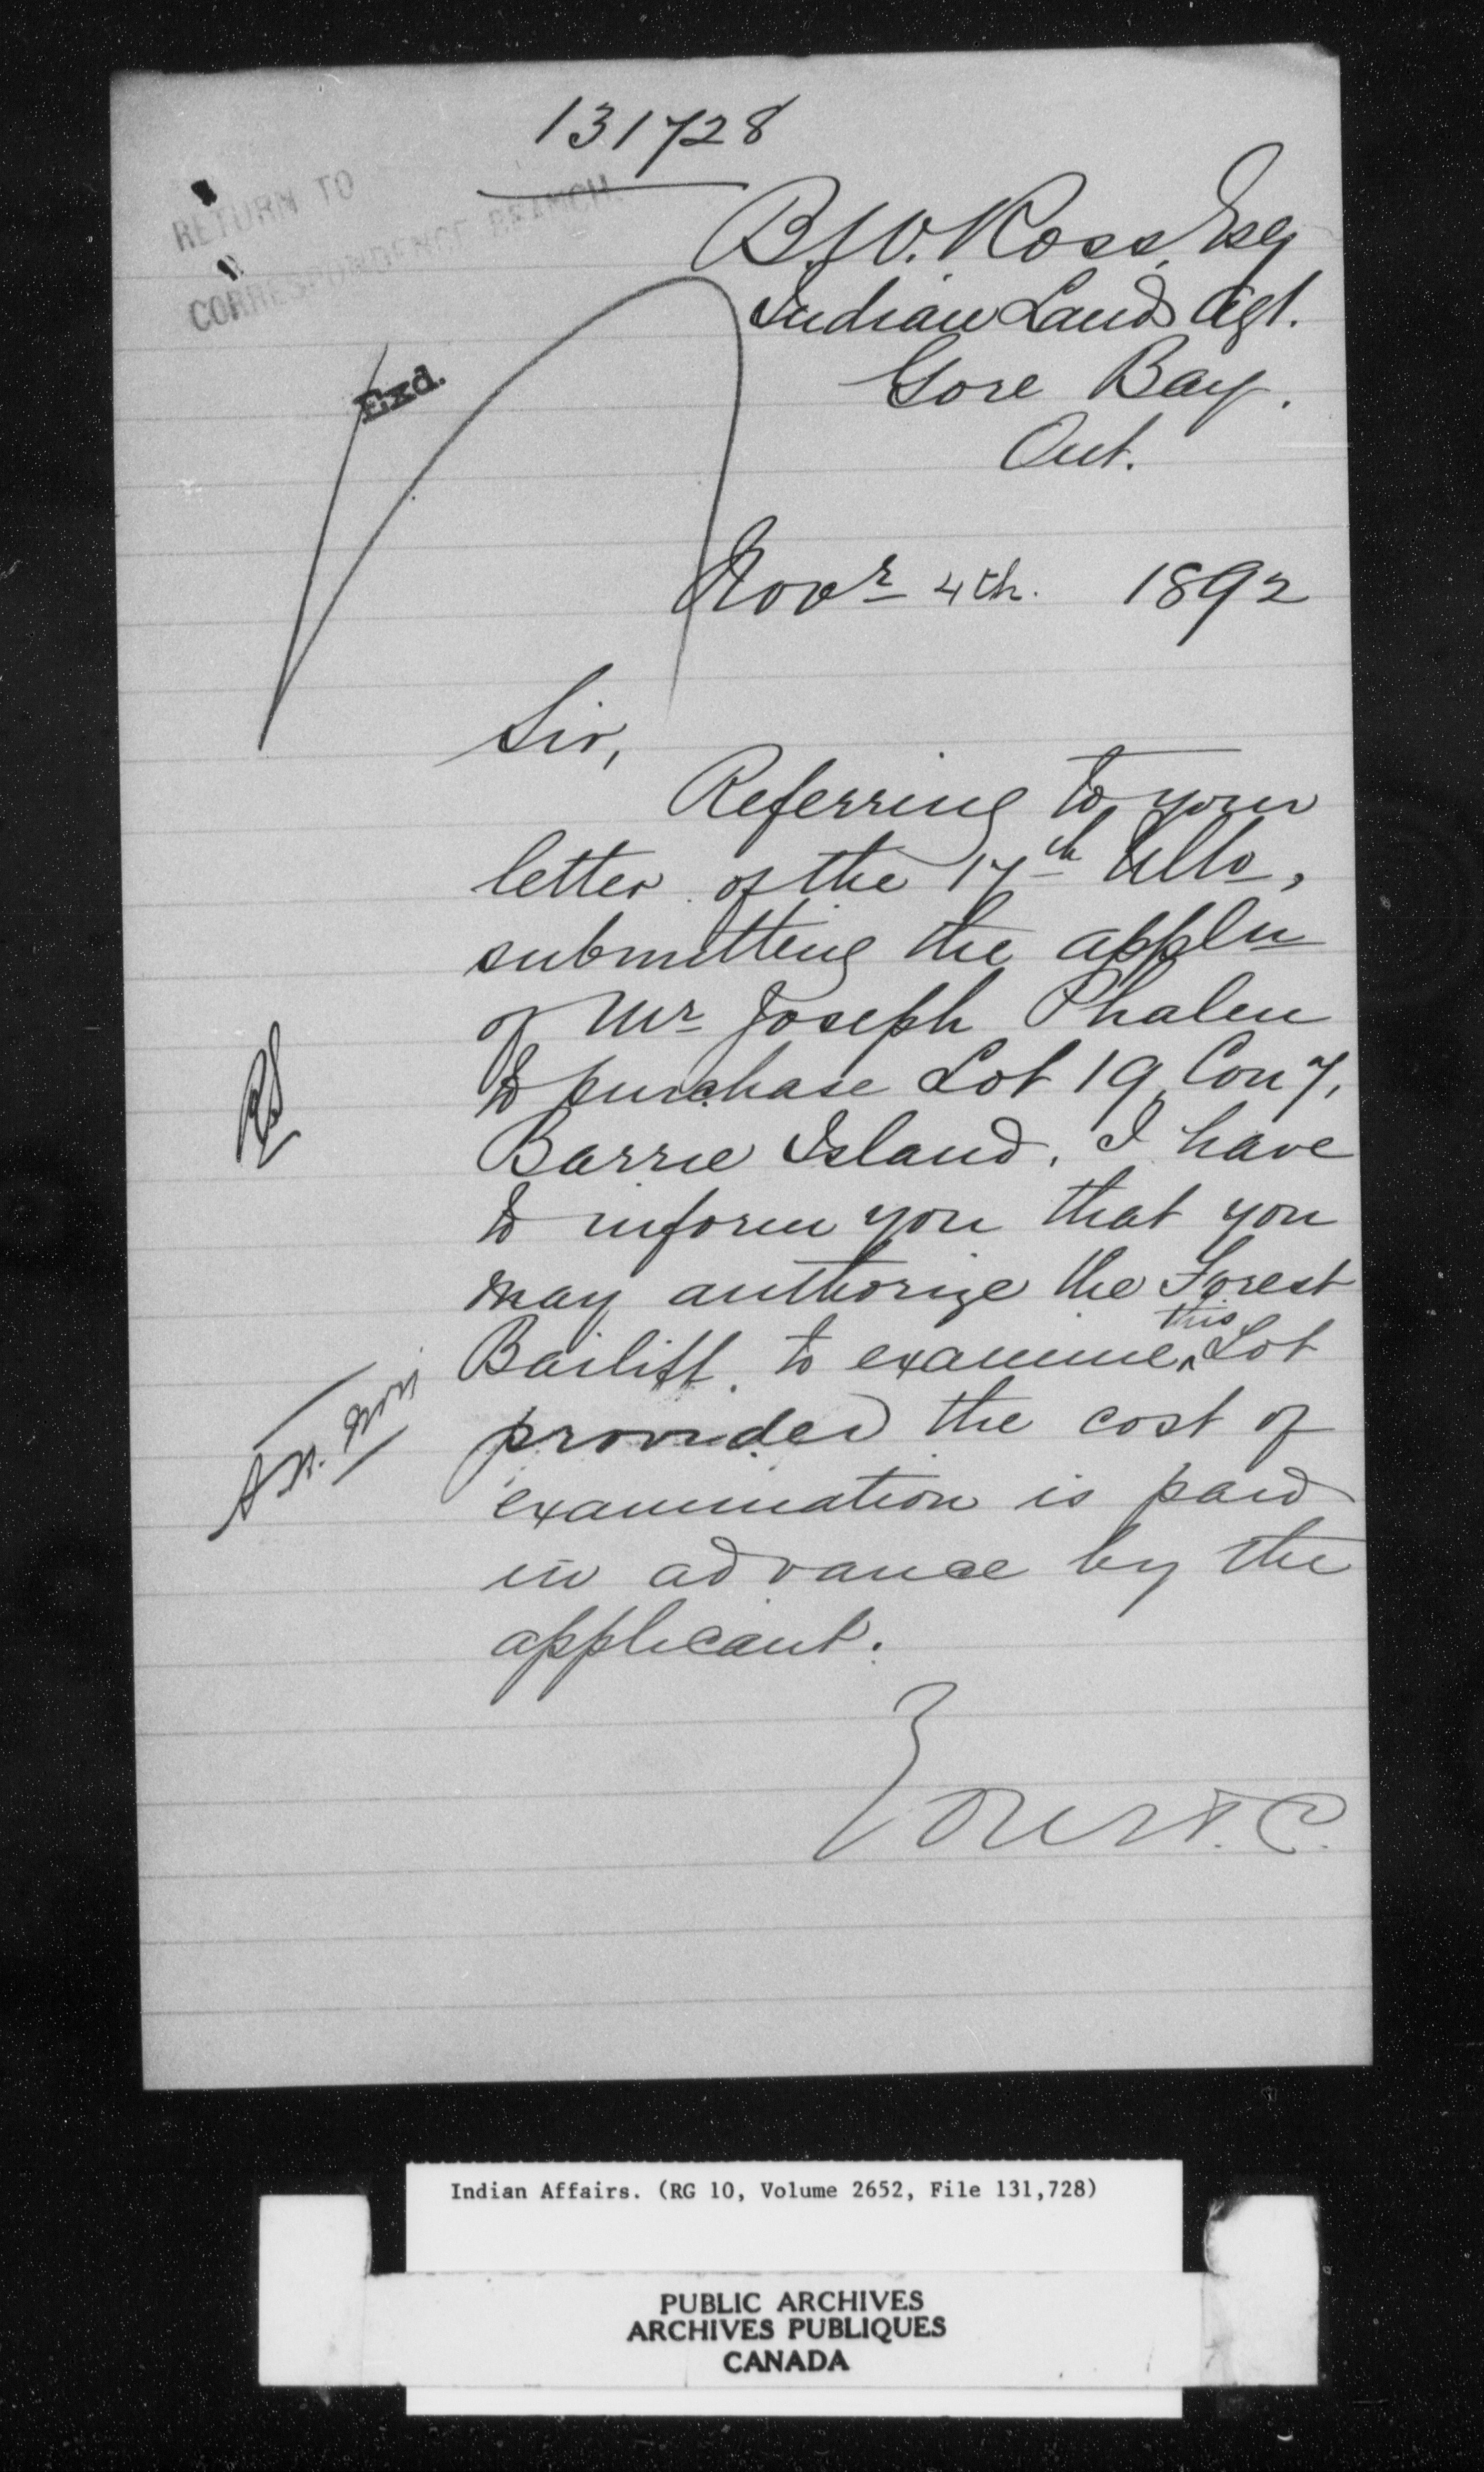 131728
RETURN TO
CORRESPONDENCE BRANCH.
B. W. Ross, Esq
Indian Lands Agt.
Exd.
Gore Bay.
Ont.
Novr 4th. 1892
Sir,
Referring to your
letter of the 17th Ulto,
submitting the appln
of Mr Joseph Phalen
to purchase Lot 19, Con 7,
Barrie Island, I have
to inform you that you
may authorize the Forest
Bailiff. to examine this Lot
provided the cost of
examination is paid
in advance by the
applicant.
Indian Affairs. (RG 10, Volume 2652, File 131,728)
PUBLIC ARCHIVES
ARCHIVES PUBLIQUES
CANADA